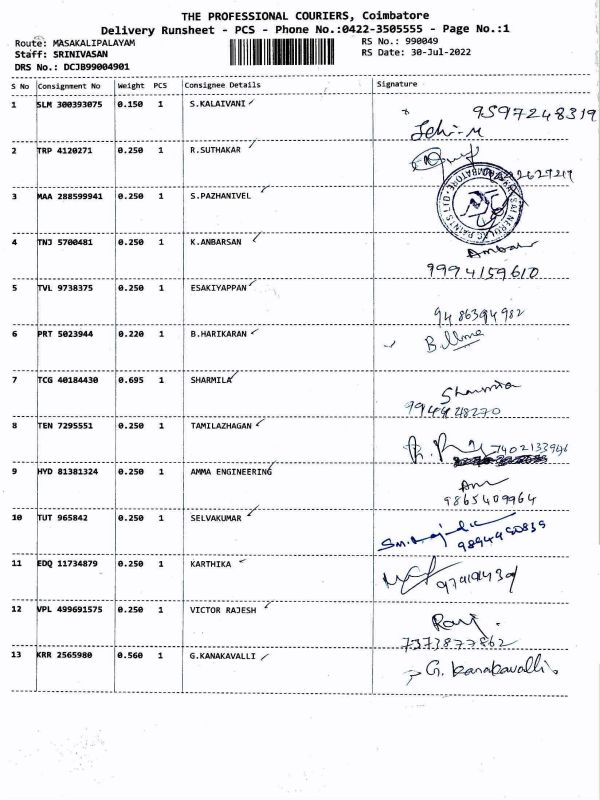 THE PROFESSIONAL COURIERS, Coimbatore
Delivery Runsheet - PCS - Phone No.:0422-3505555 - Page No.:1
Route: MASAKALIPALAYAM
RS No.: 990049
Staff: SRINIVASAN
RS Date: 30-Jul-2022
DRS No.: DCJB99004901
S No Consignment No Weight PCS Consignee Details Signature
1 SLM 300393075 0.150 1 S.KALAIVANI
9597248319
2 TRP 4120271 0.250 1 R.SUTHAKAR
3 MAA 288599941 0.250 1 S.PAZHANIVEL
4 TNJ 5700481 0.250 1 K.ANBARSAN
9994159610
5 TVL 9738375 0.250 1 ESAKIYAPPAN
9486394982
6 PRT 5023944 0.220 1 B.HARIKARAN
7 TCG 40184430 0.695 1 SHARMILA
Sharmila
8 TEN 7295551 0.250 1 TAMILAZHAGAN
9 HYD 81381324 0.250 1 AMMA ENGINEERING
9865409964
10 TUT 965842 0.250 1 SELVAKUMAR
11 EDQ 11734879 0.250 1 KARTHIKA
12 VPL 499691575 0.250 1 VICTOR RAJESH
7373877862
13 KRR 2565980 0.560 1 G.KANAKAVALLI
G. Kanakavalli